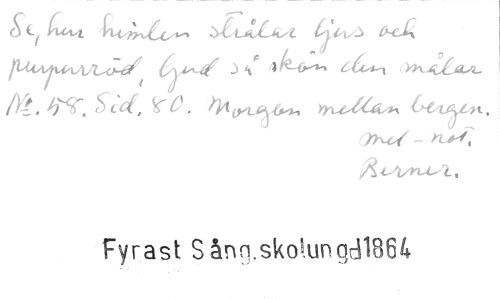 Se, hur himlen strålar ljus och
purpurröd, Gud så skön den målar
No. 58. Sid. 80. Morgon mellan bergen.
mel-not.
Berner.
Fyrast Sång.skolungd1864